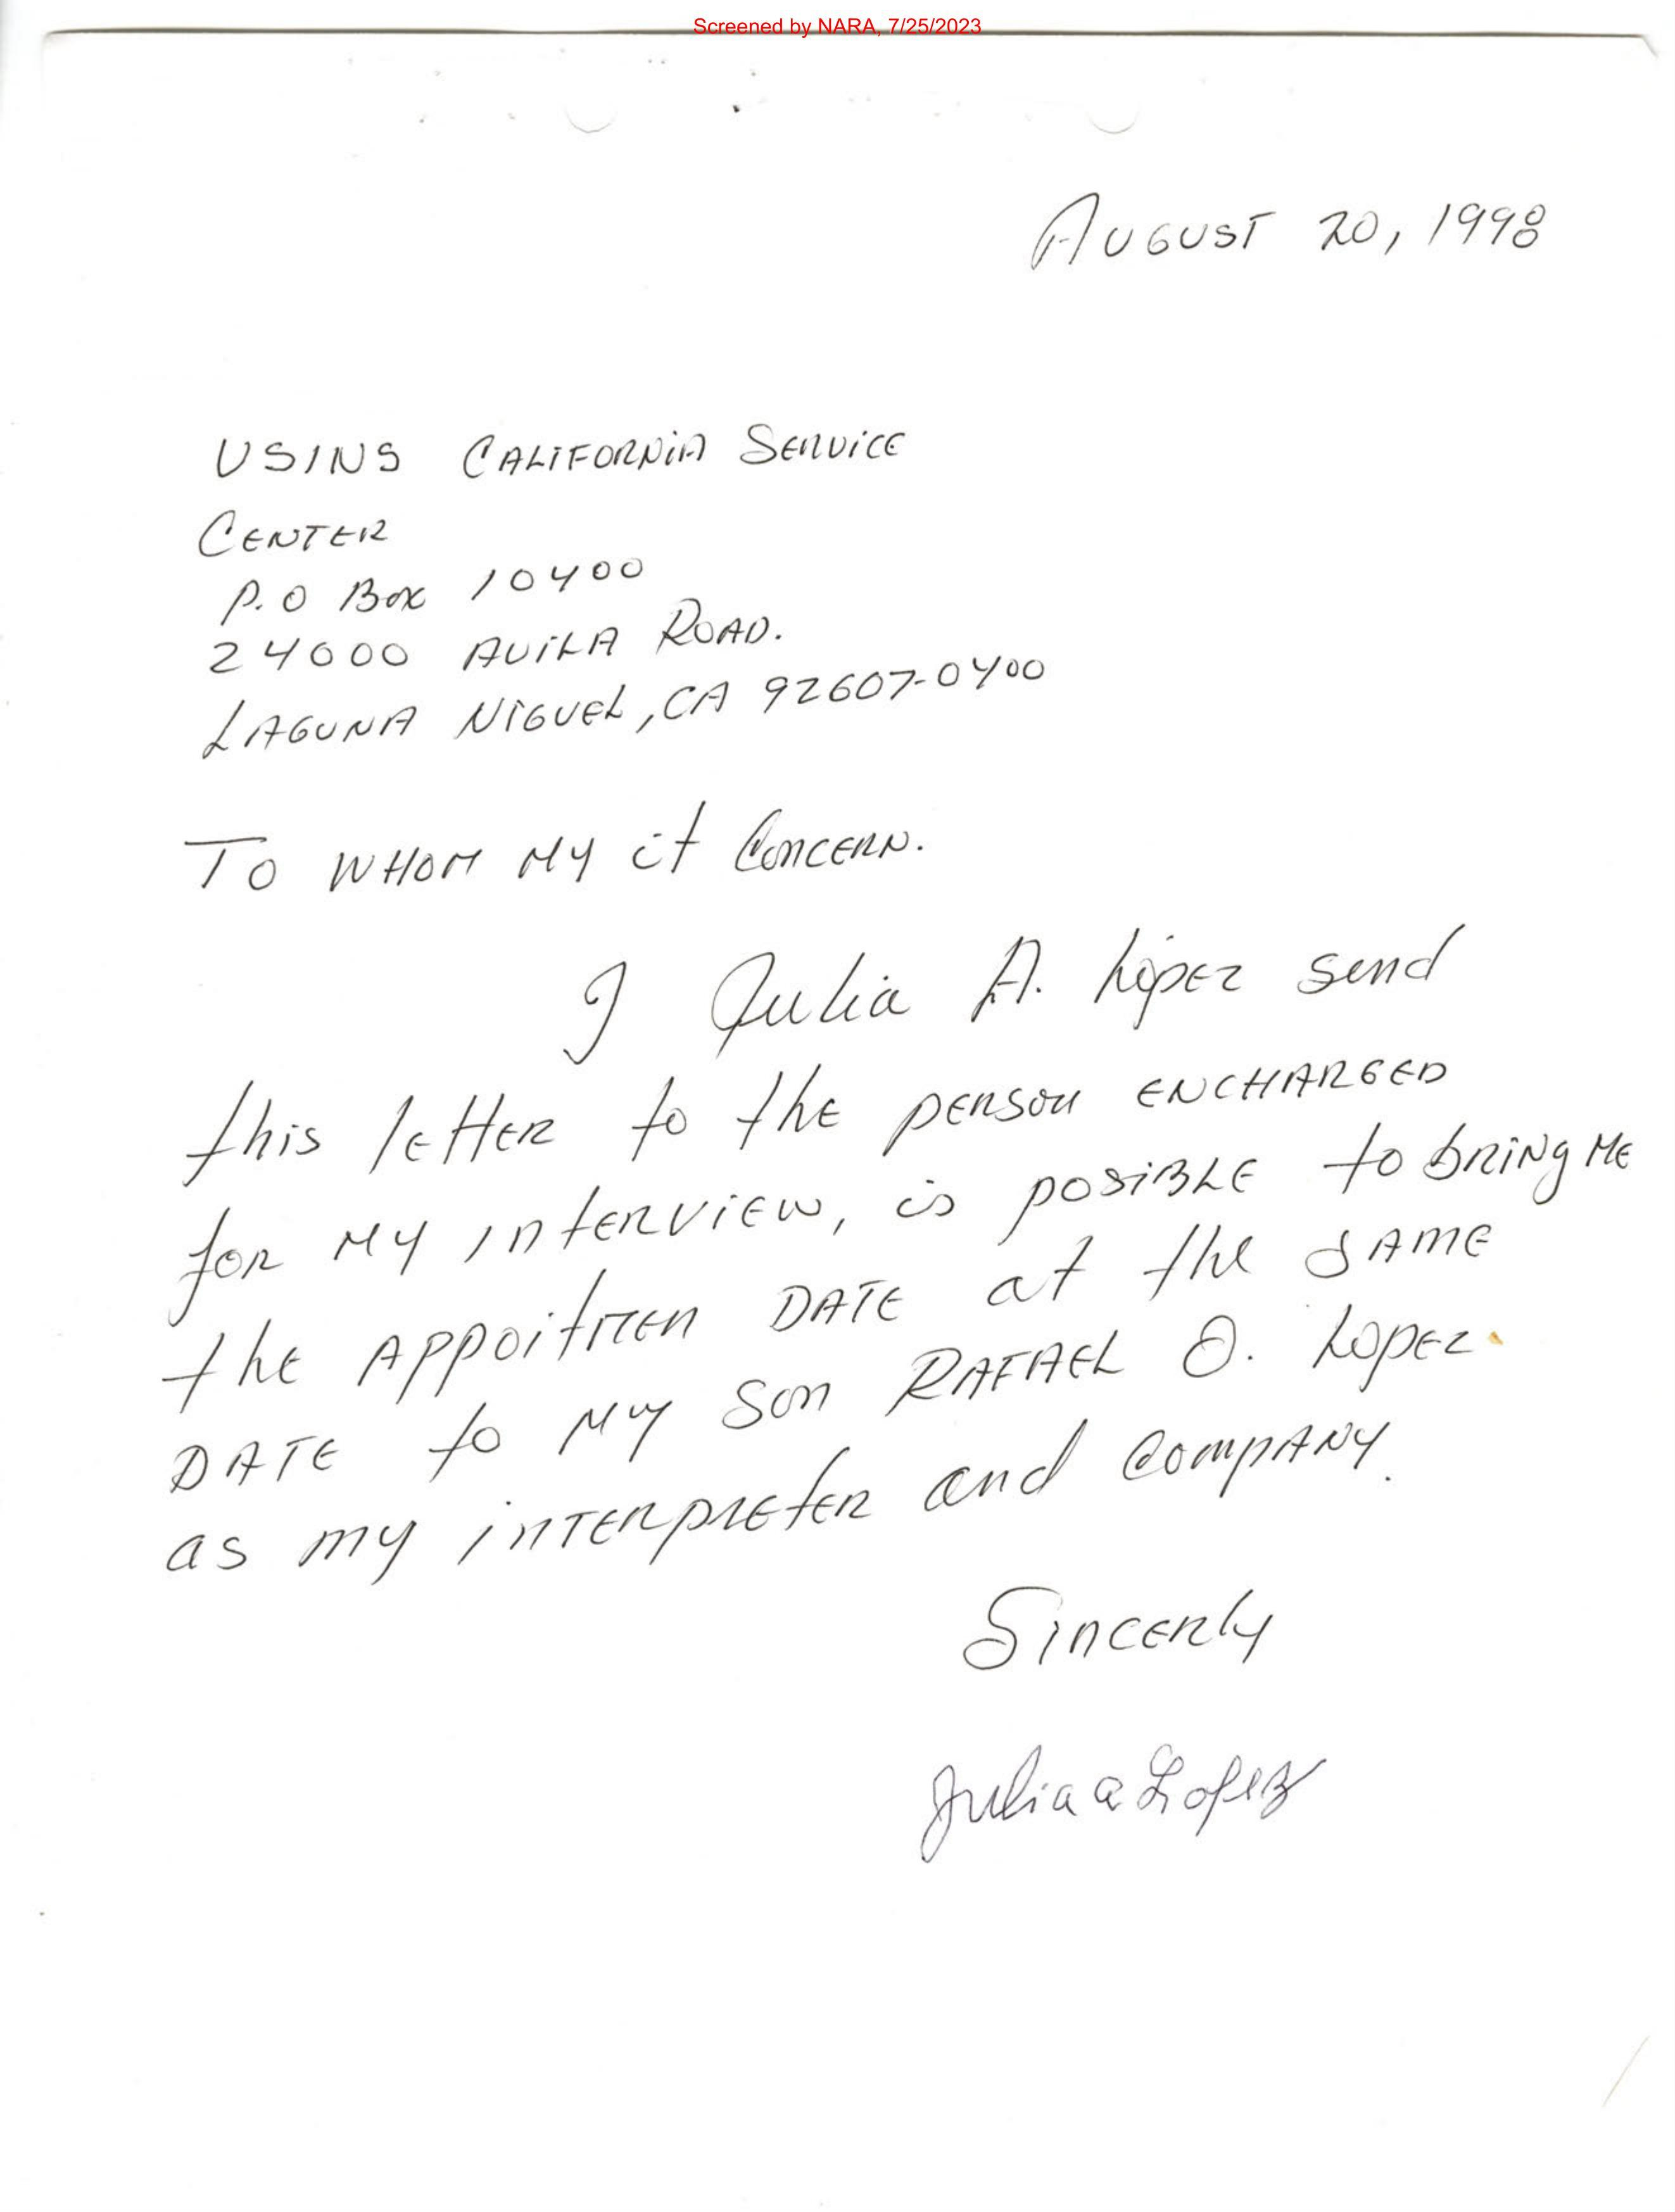 Screened by NARA, 7/25/2023
AUGUST 20, 1998
USINS CALIFORNIA SERVICE
CENTER
P.O Box 10400
24000 AVILA ROAD.
LAGUNA NIGUEL, CA 92607-0400
To WHOM MY it CONCERN.
I Julia A. López send
this letter to the person ENCHARGED
for MY interview, is posiBLE to bring ME
the Appoitmen DATE at the SAME
DATE to My Son RAFAEL O. Lopez
as my interpreter and Company.
Sincerly
Julia a Lopez